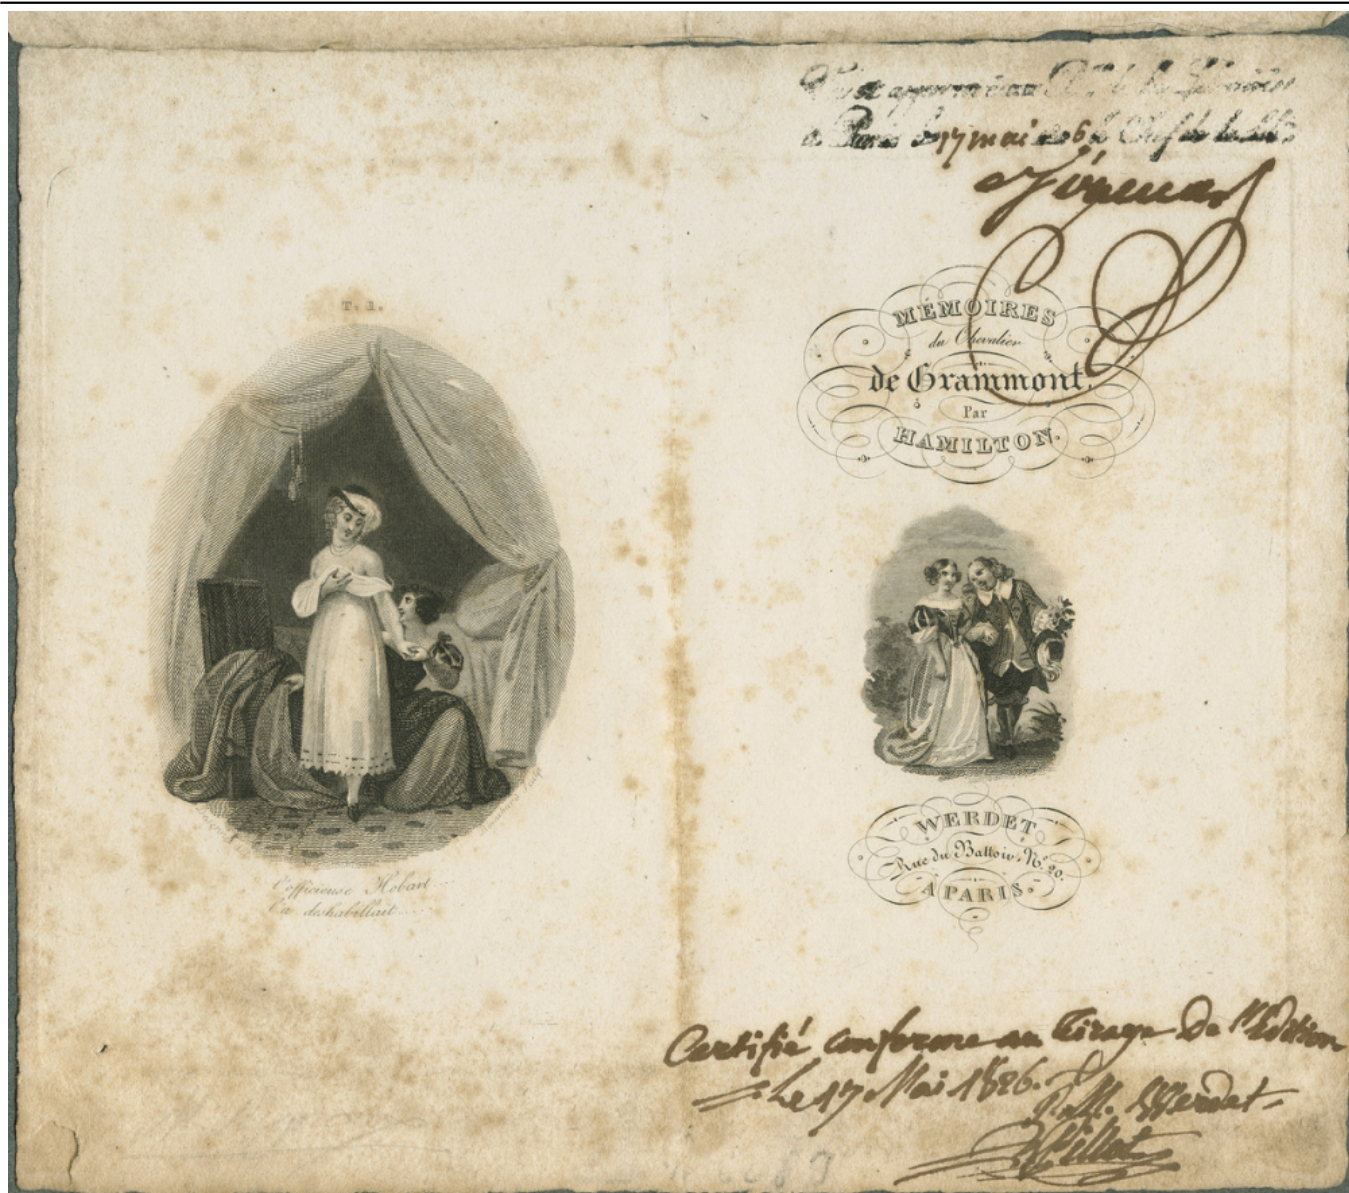 T. 1.
l'officieuse Hobart...
La deshabillait...
Vu et approuvé
à Paris le 17 mai 1826 le Chef de
MÉMOIRES
du Chevalier
de Grammont,
Par
HAMILTON.
WERDET
Rue du Battoir, N° 20.
A PARIS.
Certifié conforme au tirage de l'édition
Le 17 Mai 1826.
Werdet
Pillet